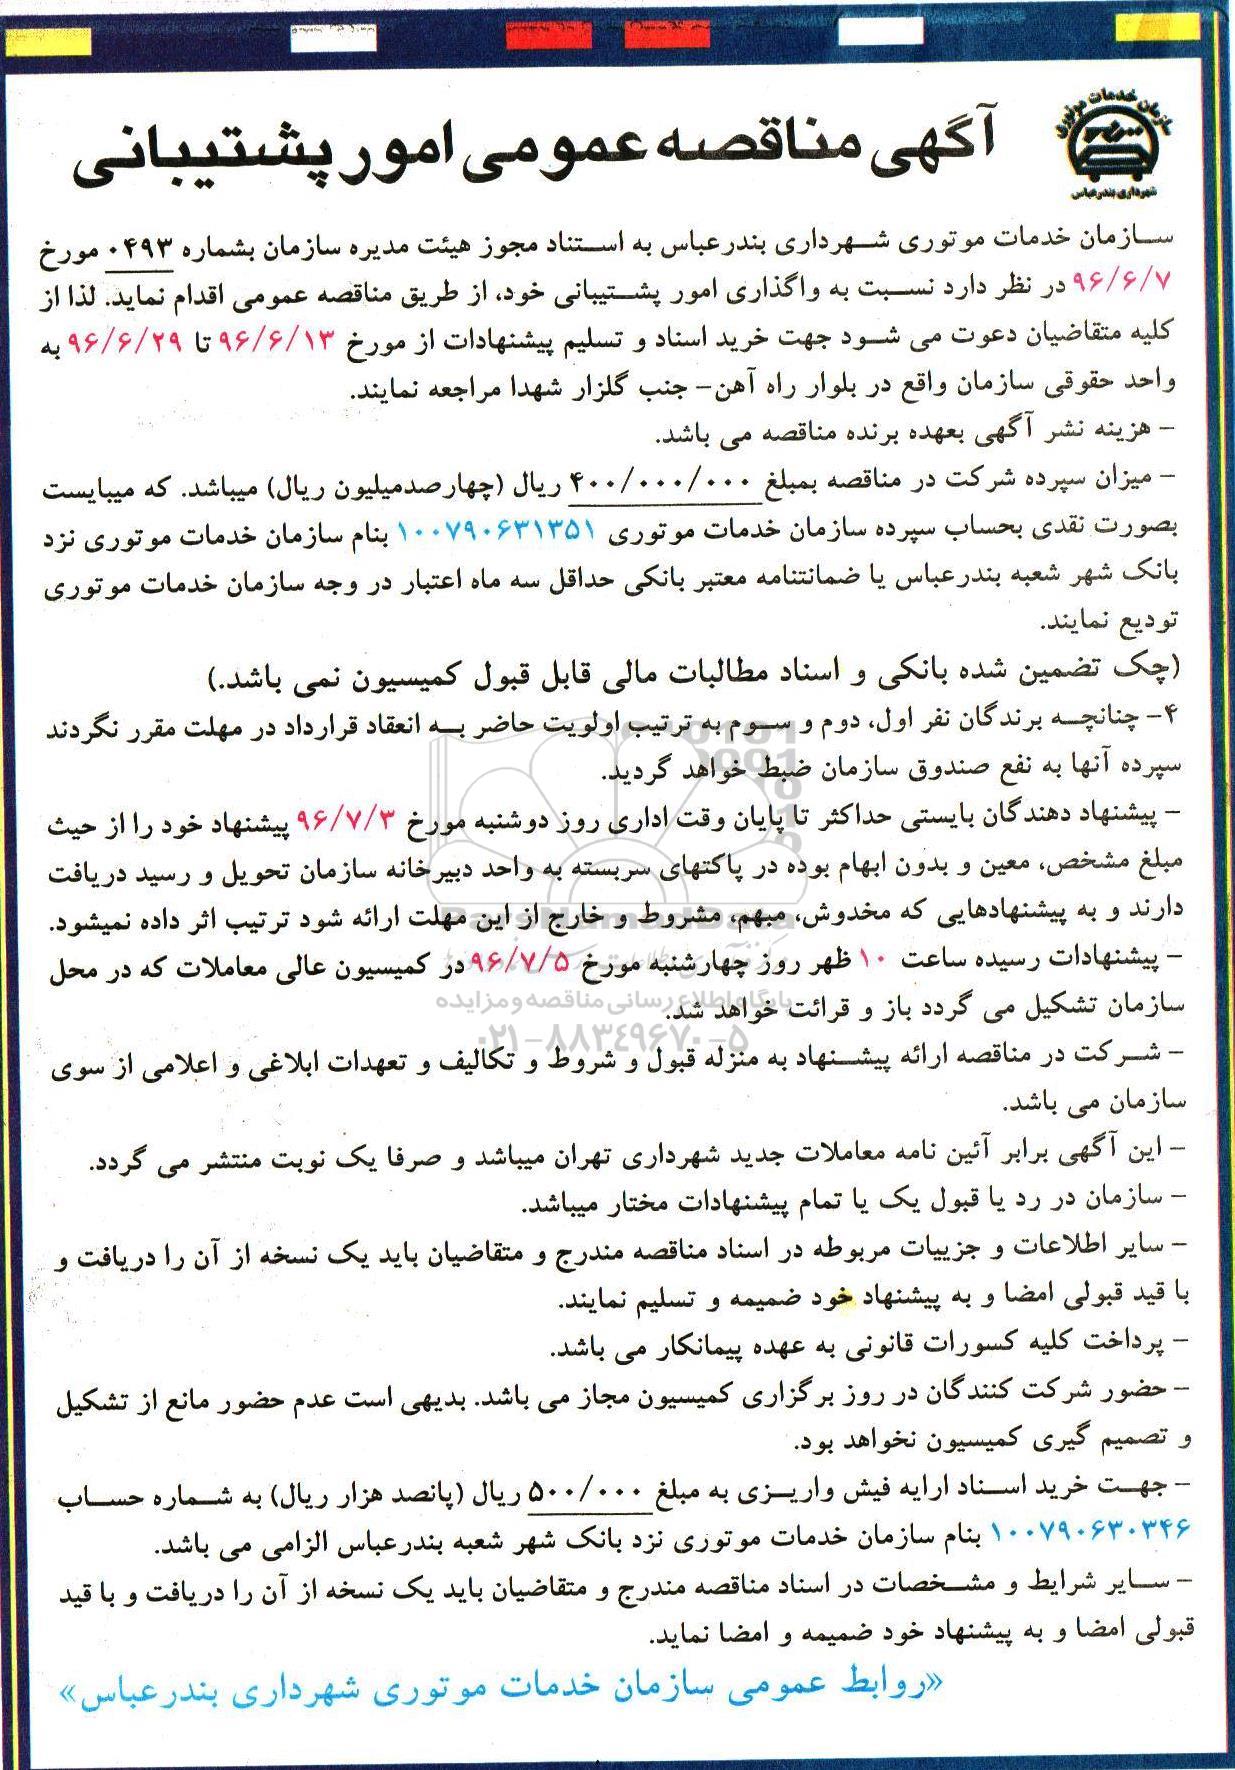 سازمان خدمات موتوری
شهرداری بندرعباس
آگهی مناقصه عمومی امور پشتیبانی
سازمان خدمات موتوری شهرداری بندرعباس به استناد مجوز هیئت مدیره سازمان بشماره ۰۴۹۳ مورخ
۹۶/۶/۷ در نظر دارد نسبت به واگذاری امور پشتیبانی خود، از طریق مناقصه عمومی اقدام نماید. لذا از
کلیه متقاضیان دعوت می شود جهت خرید اسناد و تسلیم پیشنهادات از مورخ ۹۶/۶/۱۳ تا ۹۶/۶/۲۹ به
واحد حقوقی سازمان واقع در بلوار راه آهن- جنب گلزار شهدا مراجعه نمایند.
- هزینه نشر آگهی بعهده برنده مناقصه می باشد.
- میزان سپرده شرکت در مناقصه بمبلغ ۴۰۰/۰۰۰/۰۰۰ ریال (چهارصدمیلیون ریال) میباشد. که میبایست
بصورت نقدی بحساب سپرده سازمان خدمات موتوری ۱۰۰۷۹۰۶۳۱۳۵۱ بنام سازمان خدمات موتوری نزد
بانک شهر شعبه بندرعباس یا ضمانتنامه معتبر بانکی حداقل سه ماه اعتبار در وجه سازمان خدمات موتوری
تودیع نمایند.
(چک تضمین شده بانکی و اسناد مطالبات مالی قابل قبول کمیسیون نمی باشد.)
۴- چنانچه برندگان نفر اول، دوم و سوم به ترتیب اولویت حاضر به انعقاد قرارداد در مهلت مقرر نگردند
سپرده آنها به نفع صندوق سازمان ضبط خواهد گردید.
- پیشنهاد دهندگان بایستی حداکثر تا پایان وقت اداری روز دوشنبه مورخ ۹۶/۷/۳ پیشنهاد خود را از حیث
مبلغ مشخص، معین و بدون ابهام بوده در پاکتهای سربسته به واحد دبیرخانه سازمان تحویل و رسید دریافت
دارند و به پیشنهادهایی که مخدوش، مبهم، مشروط و خارج از این مهلت ارائه شود ترتیب اثر داده نمیشود.
ParsNamadData
- پیشنهادات رسیده ساعت ۱۰ ظهر روز چهارشنبه مورخ ۹۶/۷/۵ در کمیسیون عالی معاملات که در محل
سازمان تشکیل می گردد باز و قرائت خواهد شد.
پایگاه اطلاع رسانی مناقصه و مزایده
۰۲۱-۸۸۳۴۹۶۷۰-۵
- شرکت در مناقصه ارائه پیشنهاد به منزله قبول و شروط و تکالیف و تعهدات ابلاغی و اعلامی از سوی
سازمان می باشد.
- این آگهی برابر آئین نامه معاملات جدید شهرداری تهران میباشد و صرفا یک نوبت منتشر می گردد.
- سازمان در رد یا قبول یک یا تمام پیشنهادات مختار میباشد.
- سایر اطلاعات و جزییات مربوطه در اسناد مناقصه مندرج و متقاضیان باید یک نسخه از آن را دریافت و
با قید قبولی امضا و به پیشنهاد خود ضمیمه و تسلیم نمایند.
- پرداخت کلیه کسورات قانونی به عهده پیمانکار می باشد.
- حضور شرکت کنندگان در روز برگزاری کمیسیون مجاز می باشد. بدیهی است عدم حضور مانع از تشکیل
و تصمیم گیری کمیسیون نخواهد بود.
- جهت خرید اسناد ارایه فیش واریزی به مبلغ ۵۰۰/۰۰۰ ریال (پانصد هزار ریال) به شماره حساب
۱۰۰۷۹۰۶۳۰۳۴۶ بنام سازمان خدمات موتوری نزد بانک شهر شعبه بندرعباس الزامی می باشد.
- سایر شرایط و مشخصات در اسناد مناقصه مندرج و متقاضیان باید یک نسخه از آن را دریافت و با قید
قبولی امضا و به پیشنهاد خود ضمیمه و امضا نماید.
«روابط عمومی سازمان خدمات موتوری شهرداری بندرعباس»